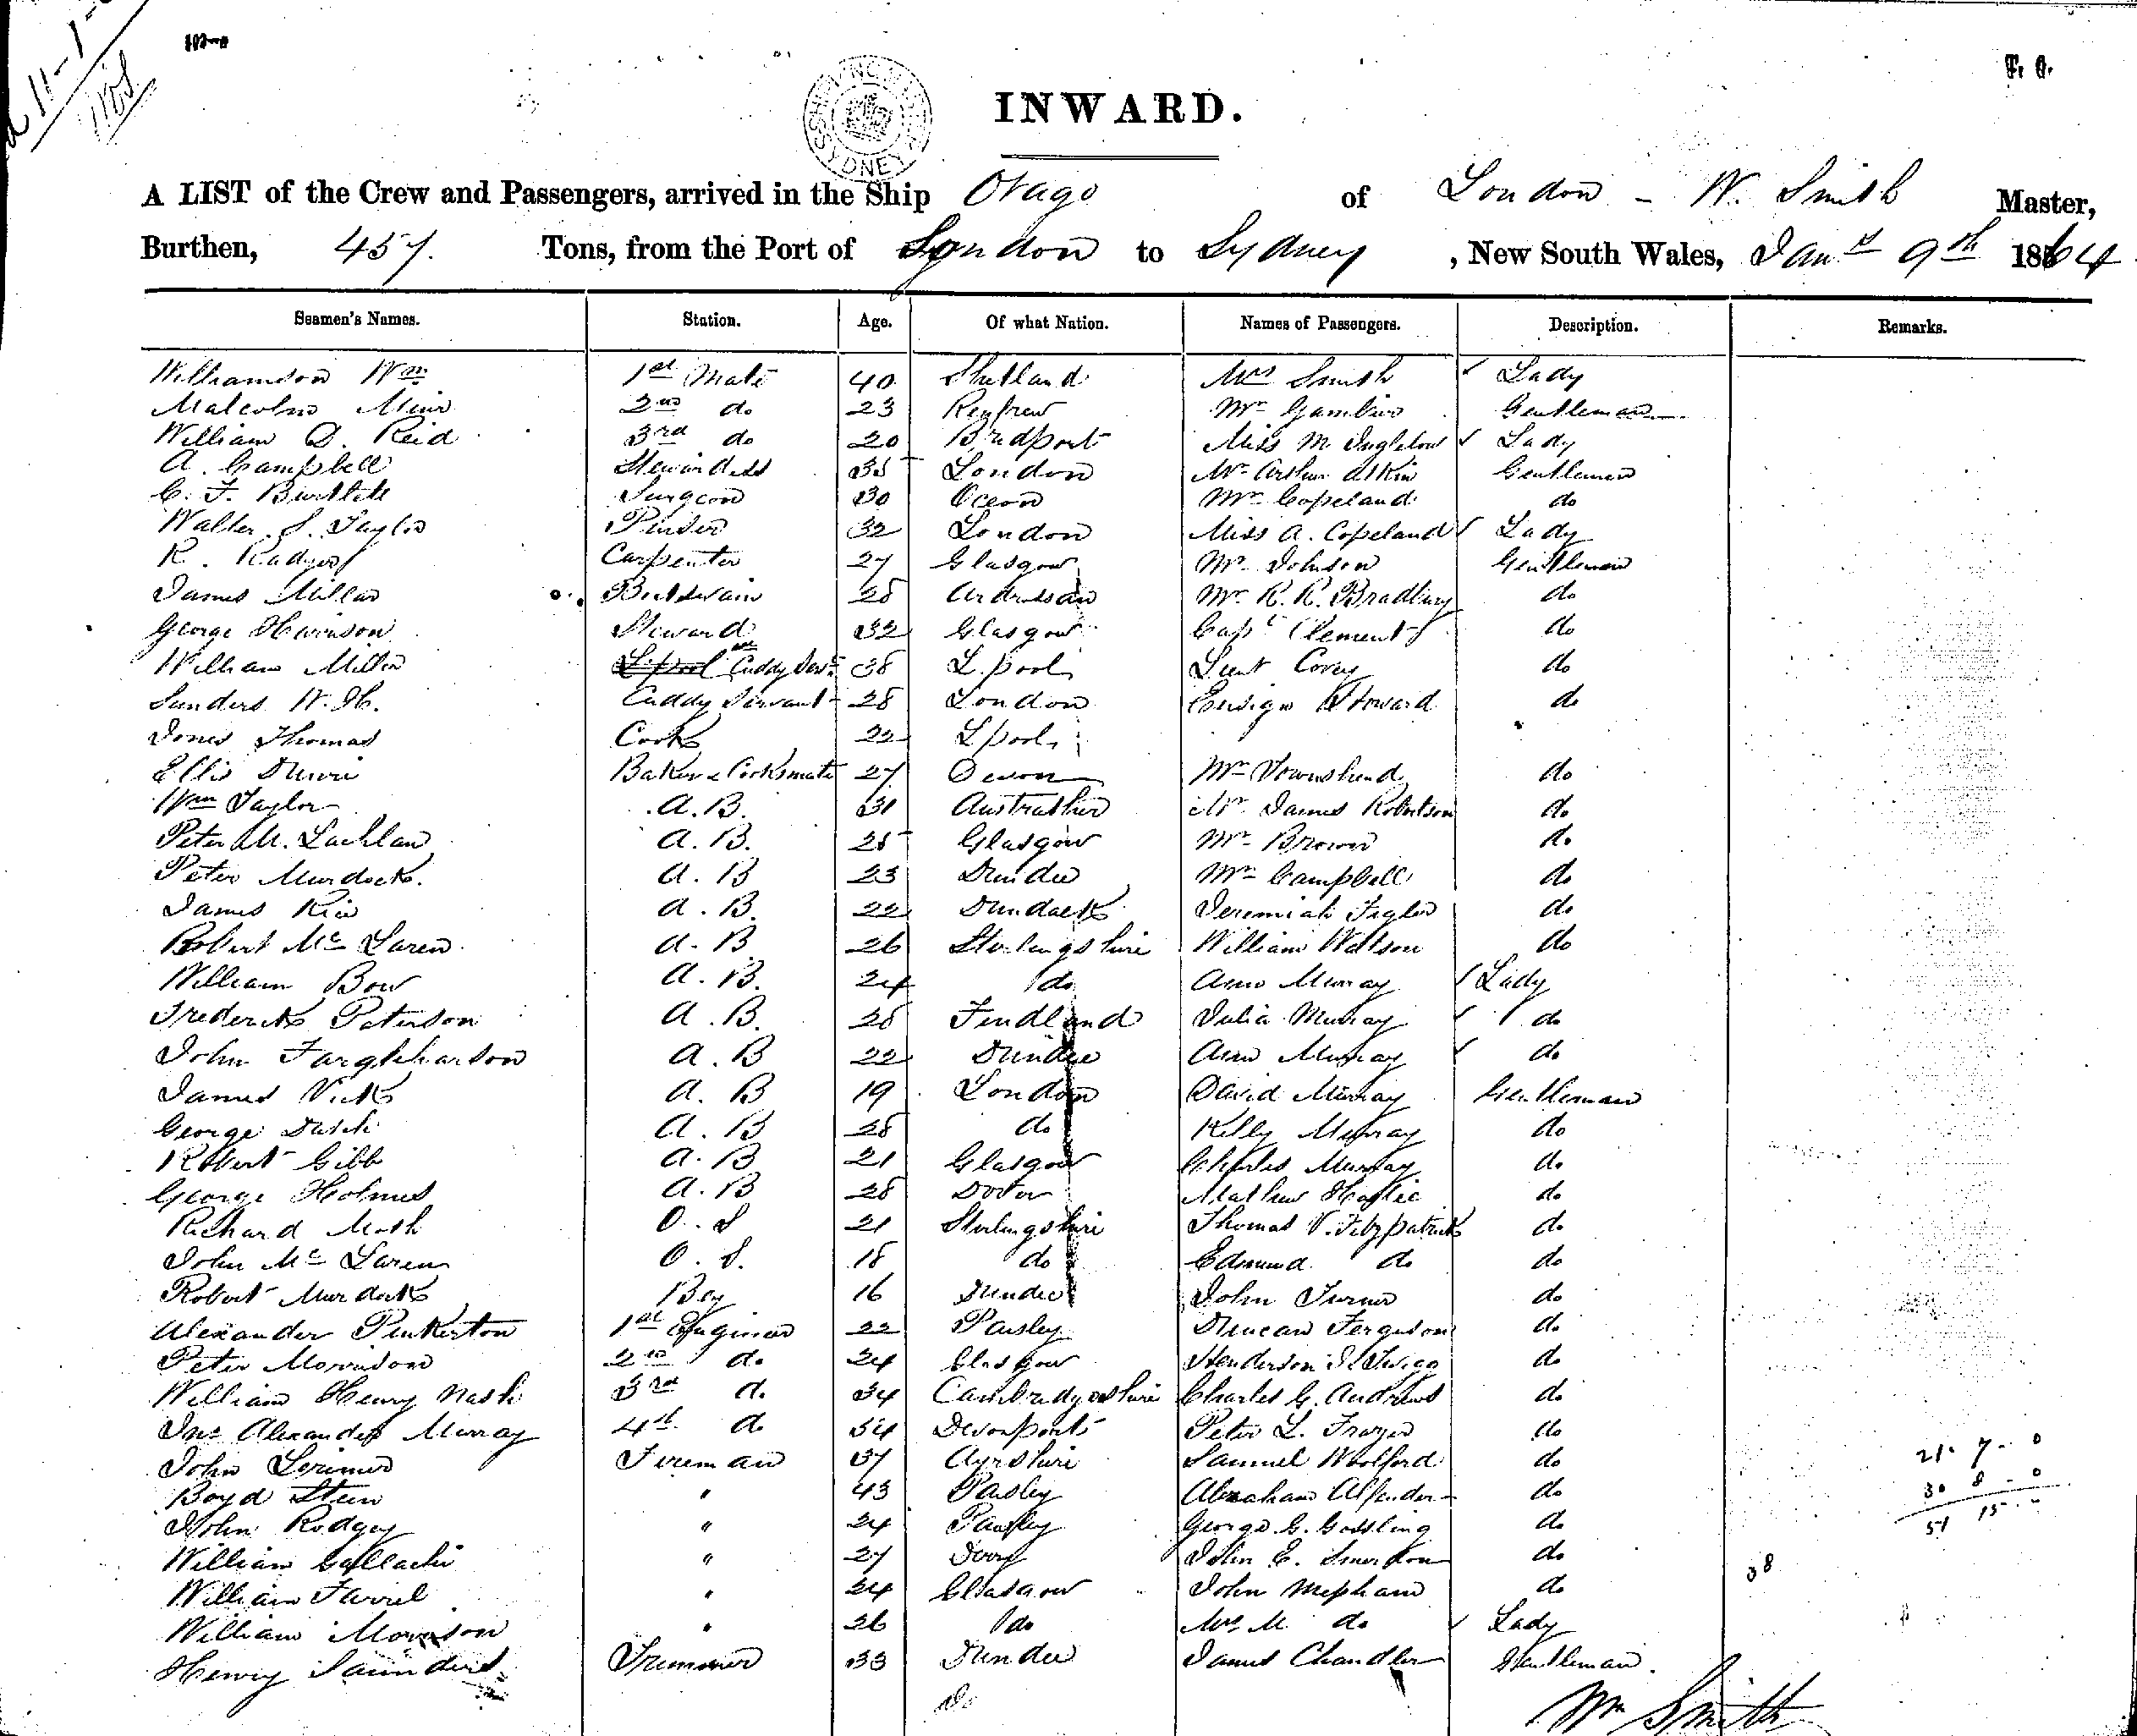 INWARD.
SHIPPING MASTER'S SYDNEY
A LIST of the Crew and Passengers, arrived in the Ship Otago of London - W. Smith Master,
Burthen, 457. Tons, from the Port of London to Sydney, New South Wales, Jany 9th 1864
Seamen's Names. Station. Age. Of what Nation. Names of Passengers. Description. Remarks.
Williamson Wm 1st Mate 40 Shetland Mrs Smith Lady
Malcolm Muir 2nd do 23 Renfrew Mr Gentleman
William D. Reid 3rd do 20 Bridport Miss M Lady
A. Campbell Stewardess 35 London Mr Arthur Atkin Gentleman
C. F. 30 Mr Copeland do
Walter S. Taylor 32 London Miss A. Copeland Lady
R. Carpenter 27 Glasgow Mr Johnson Gentleman
James Millar Boatswain 28 Ardrossan Mr R. R. Bradbury do
George Steward 32 Glasgow Capt Clements do
William Miller L.pool Cuddy Servt 38 L.pool Lieut Covey do
W. H. Cuddy Servant 28 London Ensign do
Jones Thomas Cook 22 L.pool
Ellis Baker & Cooksmate 27 Devon Mr Townshend do
Wm Taylor A.B. 31 Mr James Robertson do
Peter M. Lachlan A.B. 25 Glasgow Mr Brown do
Peter Murdock. A.B 23 Dundee Mr Campbell do
James A.B. 22 Dundalk Jeremiah do
Robert Mc Laren A.B 26 Sterlingshire William Wattson do
William Bow A.B. 24 do Murray Lady
Frederick Paterson A.B. 28 Findland Julia Murray do
John A.B 22 Dundee Murray do
James A.B 19 London David Murray Gentleman
George A.B 28 do Kelly Murray do
Robert Gibb A.B 21 Glasgow Charles Murray do
George Holmes A.B 28 Mathew do
Richard O.S 21 Sterlingshire Thomas V. Fitzpatrick do
John Mc Laren O.S. 18 do Edmund do do
Robert Murdock Boy 16 Dundee John Turner do
Alexander Pinkerton 1st Engineer 22 Paisley Duncan Ferguson do
Peter Morrison 2nd do 24 Glasgow Henderson do
William Henry Nash 3rd do 34 Cambridgeshire Charles G. Andrews do
Jno Alexander Murray 4th do 34 Devonport Peter L. do
John Lorimer Fireman 37 Ayrshire Samuel Woolford do
Boyd " 43 Paisley do
John Rodger " 24 Paisley George G. Gossling do
William " 27 John E. do
William " 24 Glasgow John Mepham do
William Morrison " 26 do Mrs M do Lady
Henry Saunders Trimmer 33 Dundee James Chandler Gentleman.
21 7 - 0
30 8 - 0
51 15 -
38
Do
Wm Smith